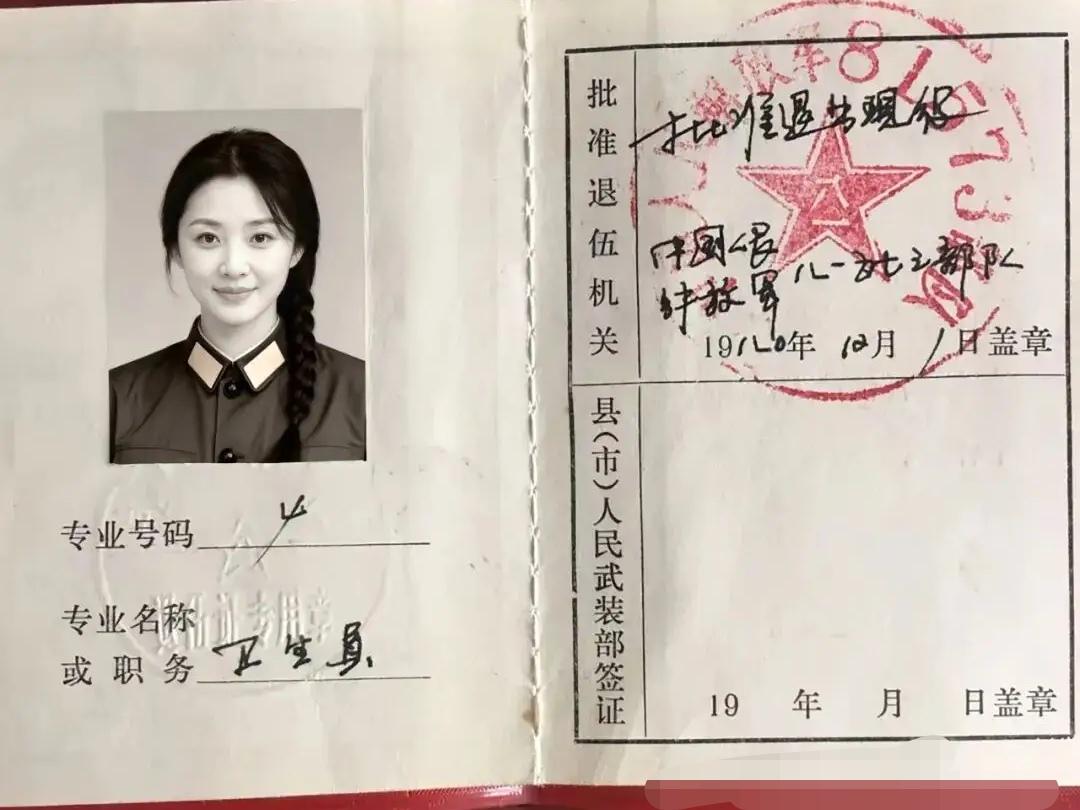 专业号码 4
专业名称
或职务 卫生员
批准退伍机关
批准退出现役
中国人民
解放军 八一五七三部队
1980年12月1日盖章
县(市)人民武装部签证
19 年 月 日盖章